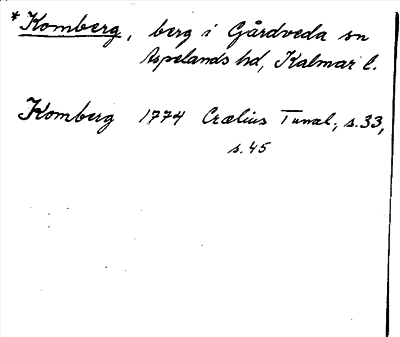 *Komberg, berg i Gårdveda sn
Aspelands hd, Kalmar l.
Komberg 1774 Crælius Tunal., s.33,
s.45